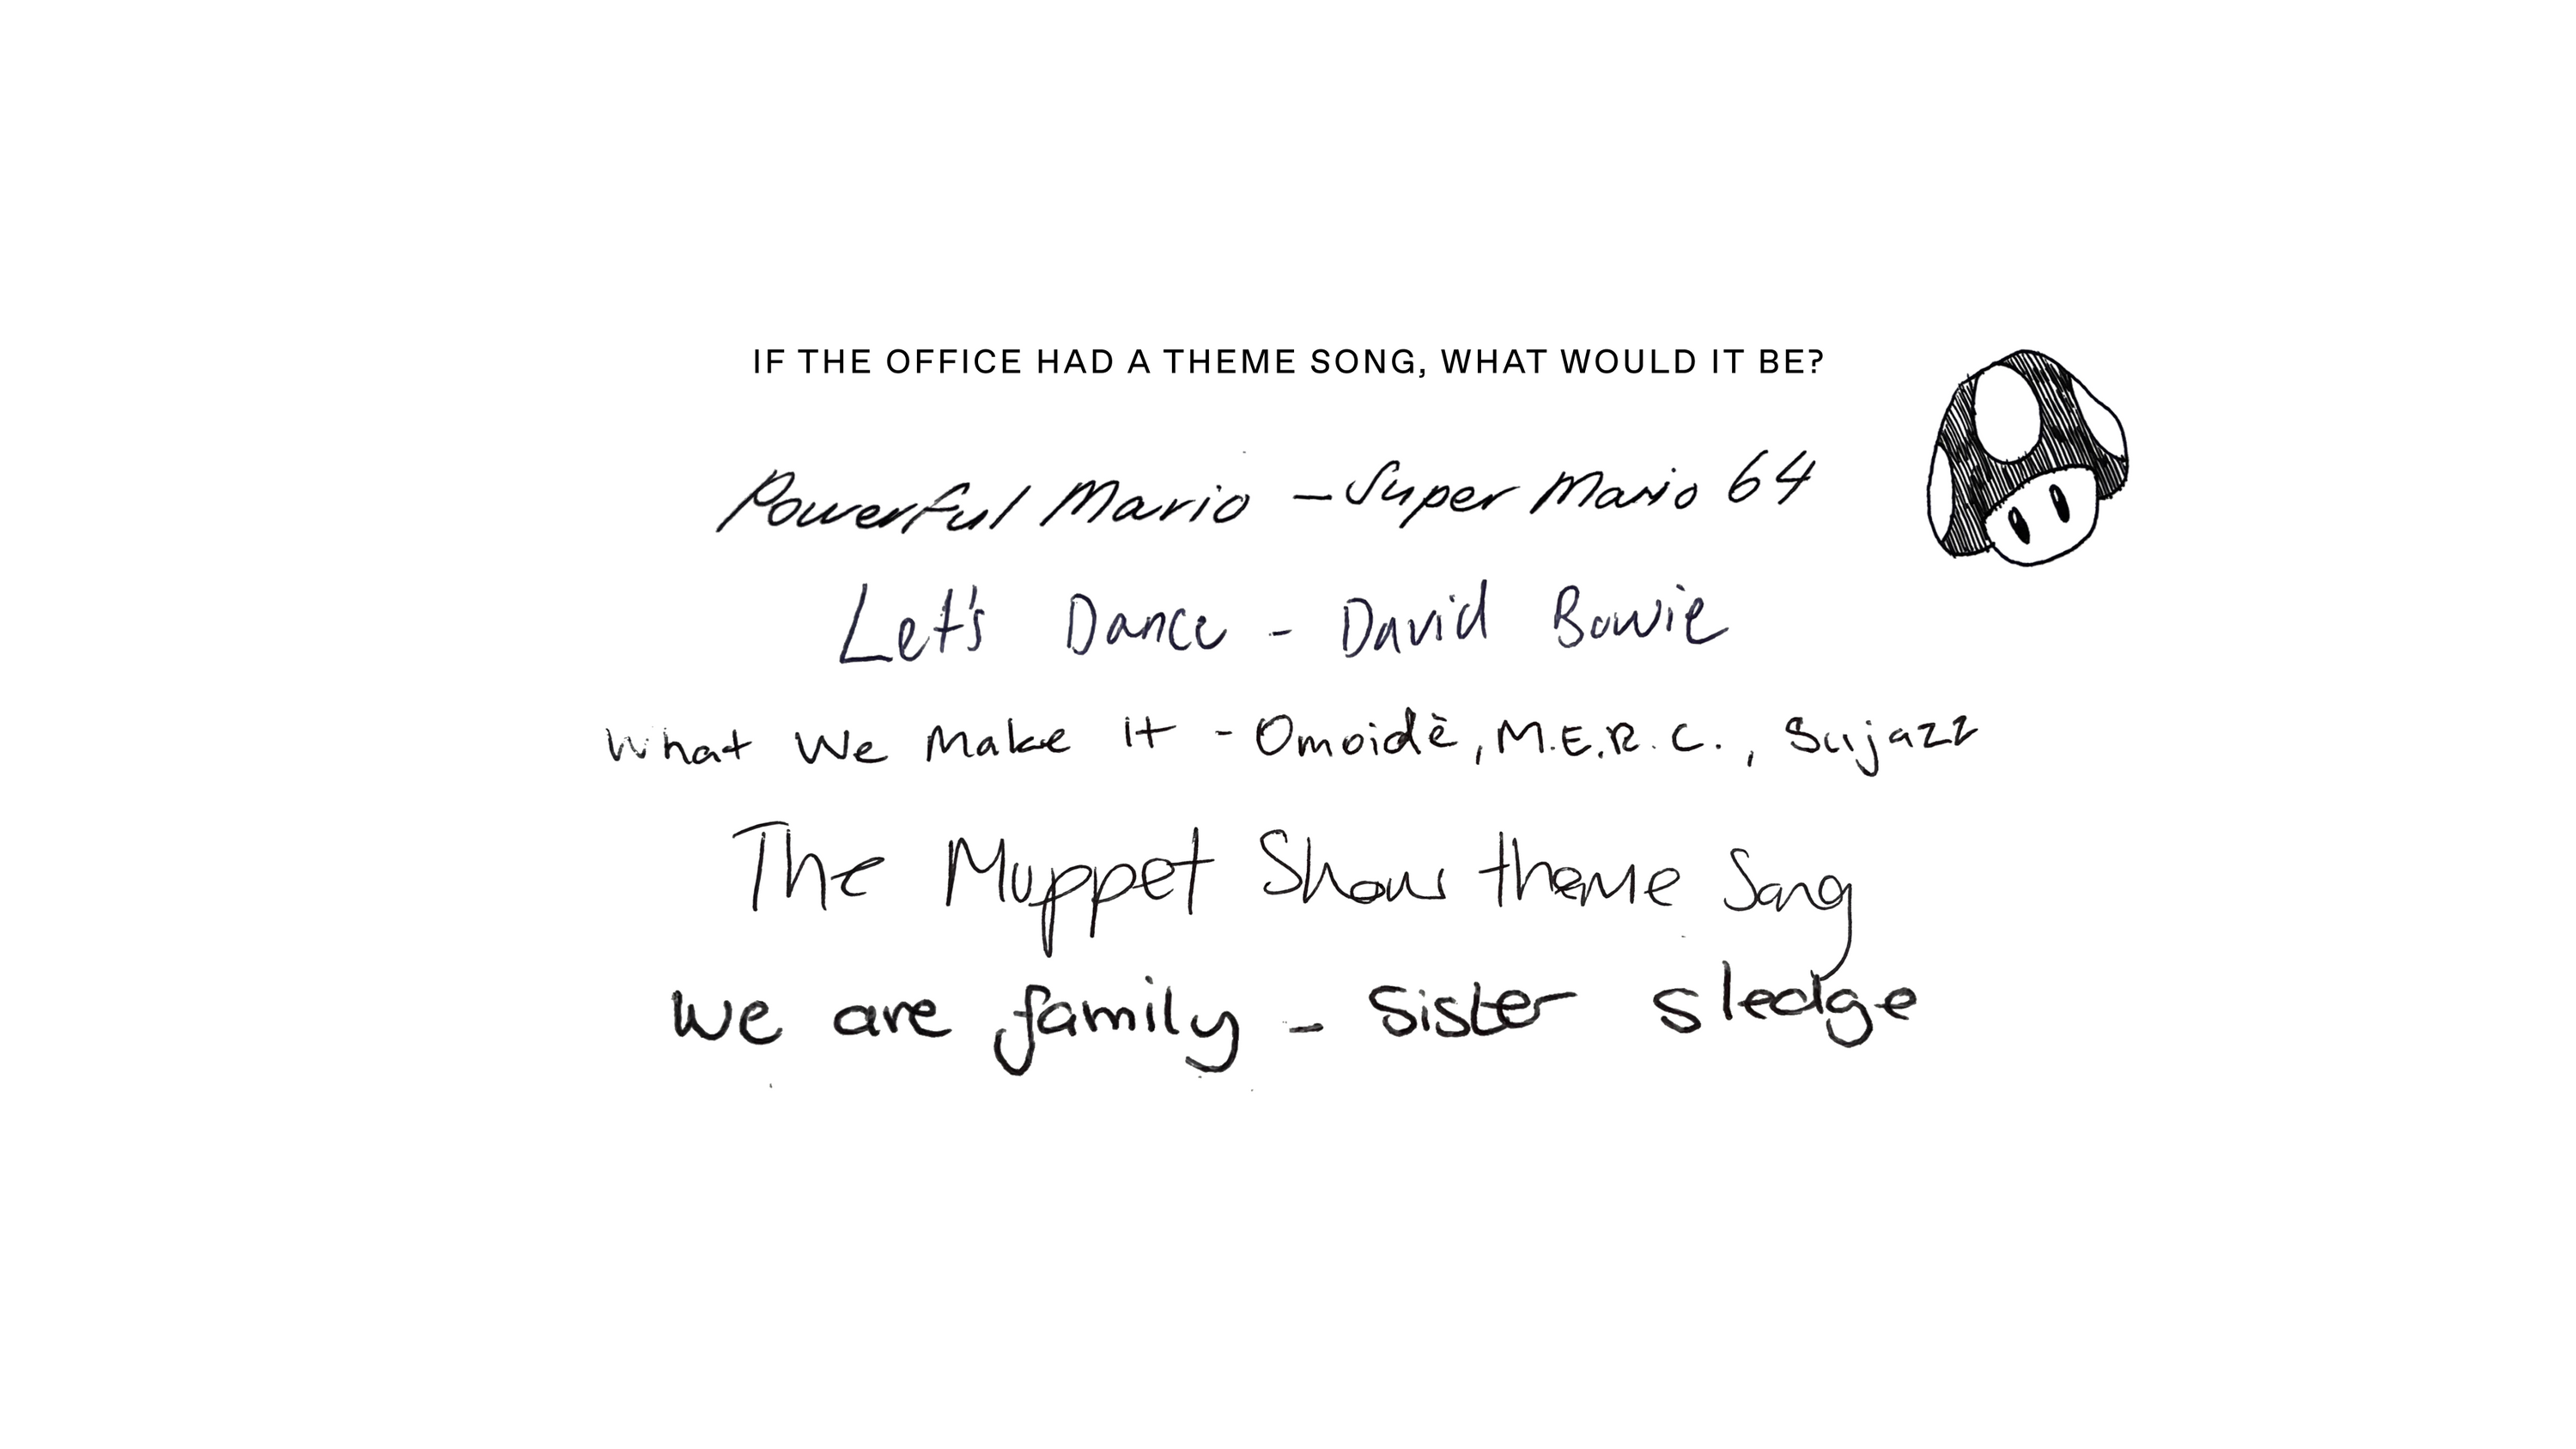 IF THE OFFICE HAD A THEME SONG, WHAT WOULD IT BE?
Powerful Mario - Super Mario 64
Let's Dance - David Bowie
What We Make It - Omoidè, M.E.R.C., Sujazz
The Muppet Show theme Song
we are family - Sister sledge